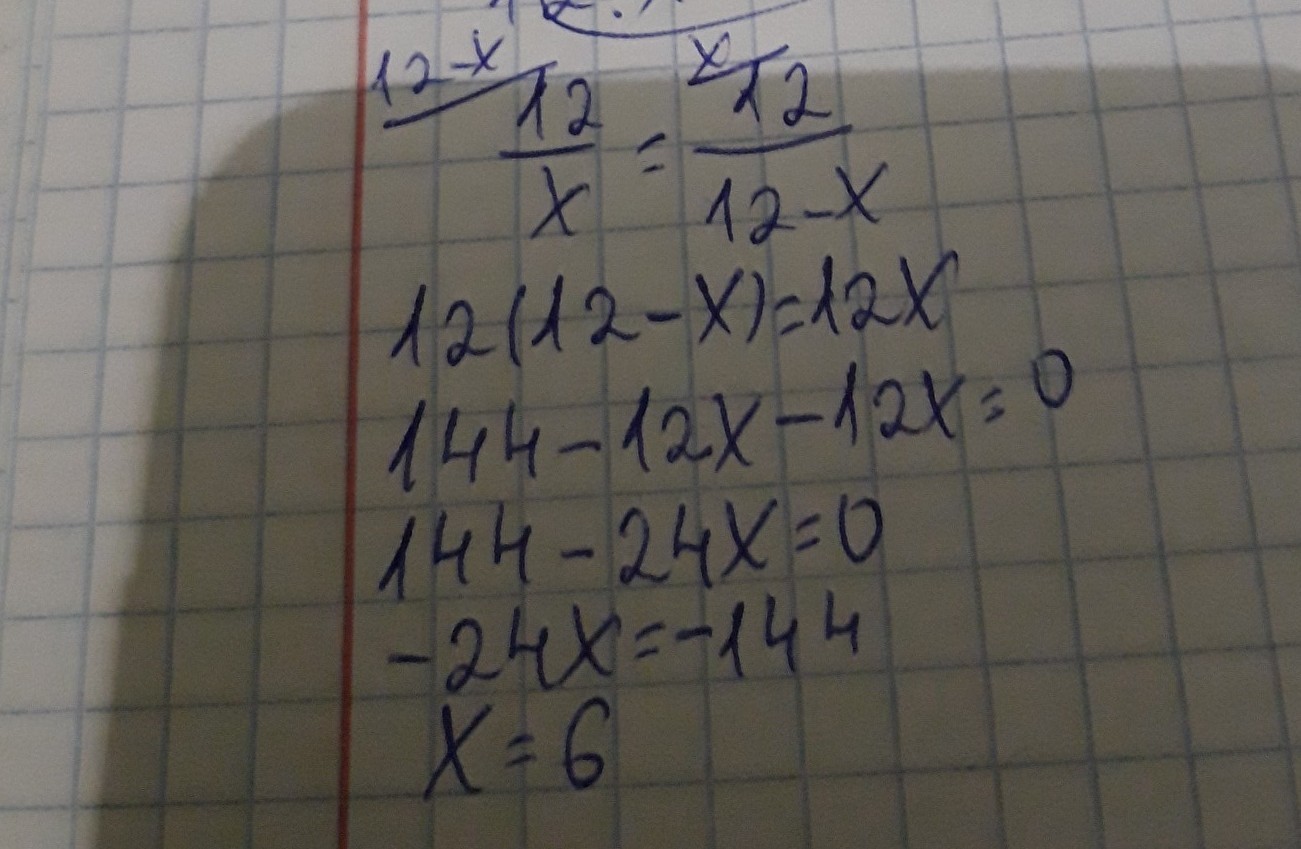 12-x 12/x = x 12/12-x
12(12-x)=12x
144-12x-12x=0
144-24x=0
-24x=-144
x=6